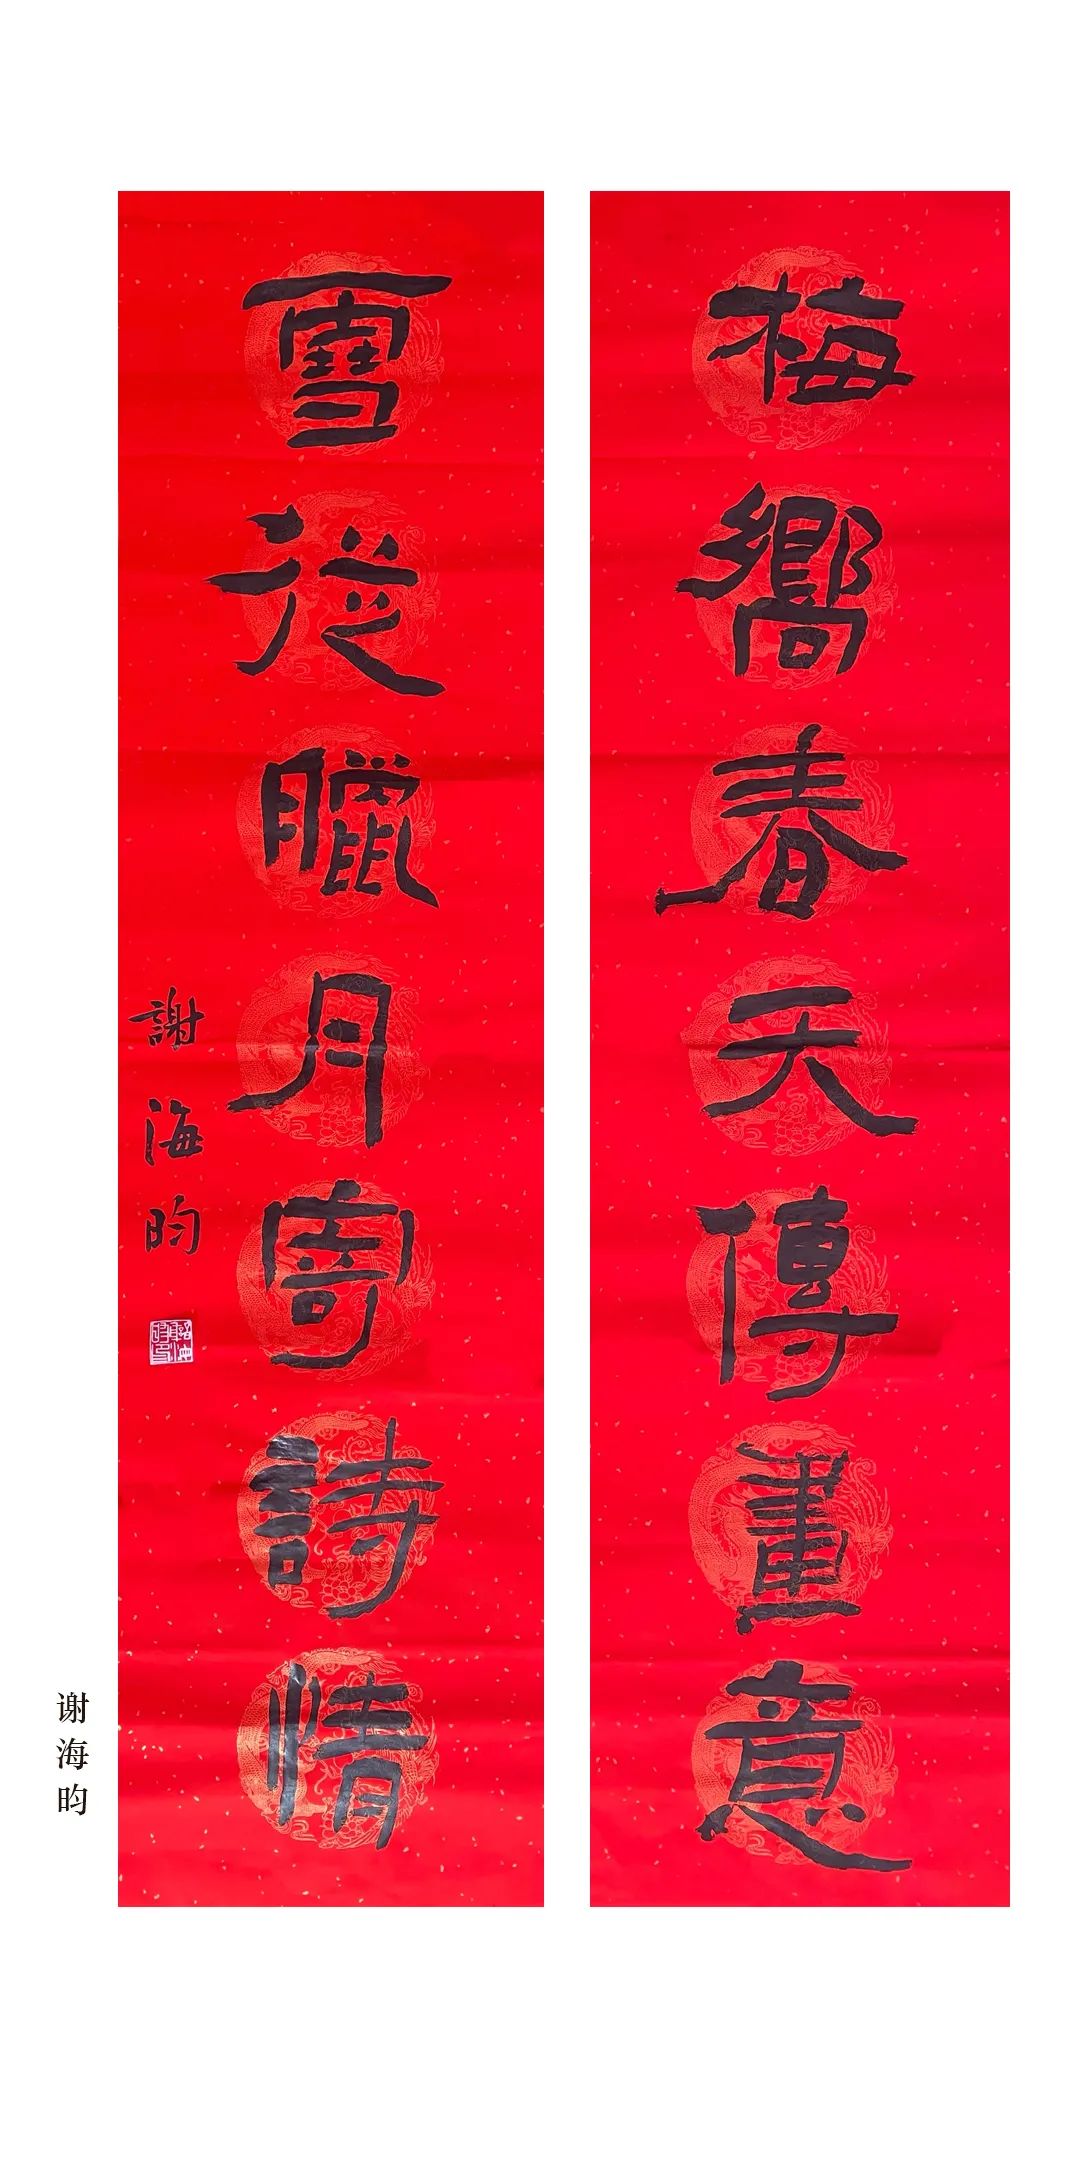 梅嚮春天傳畫意
雪從臘月寄詩情
謝海昀
谢海昀